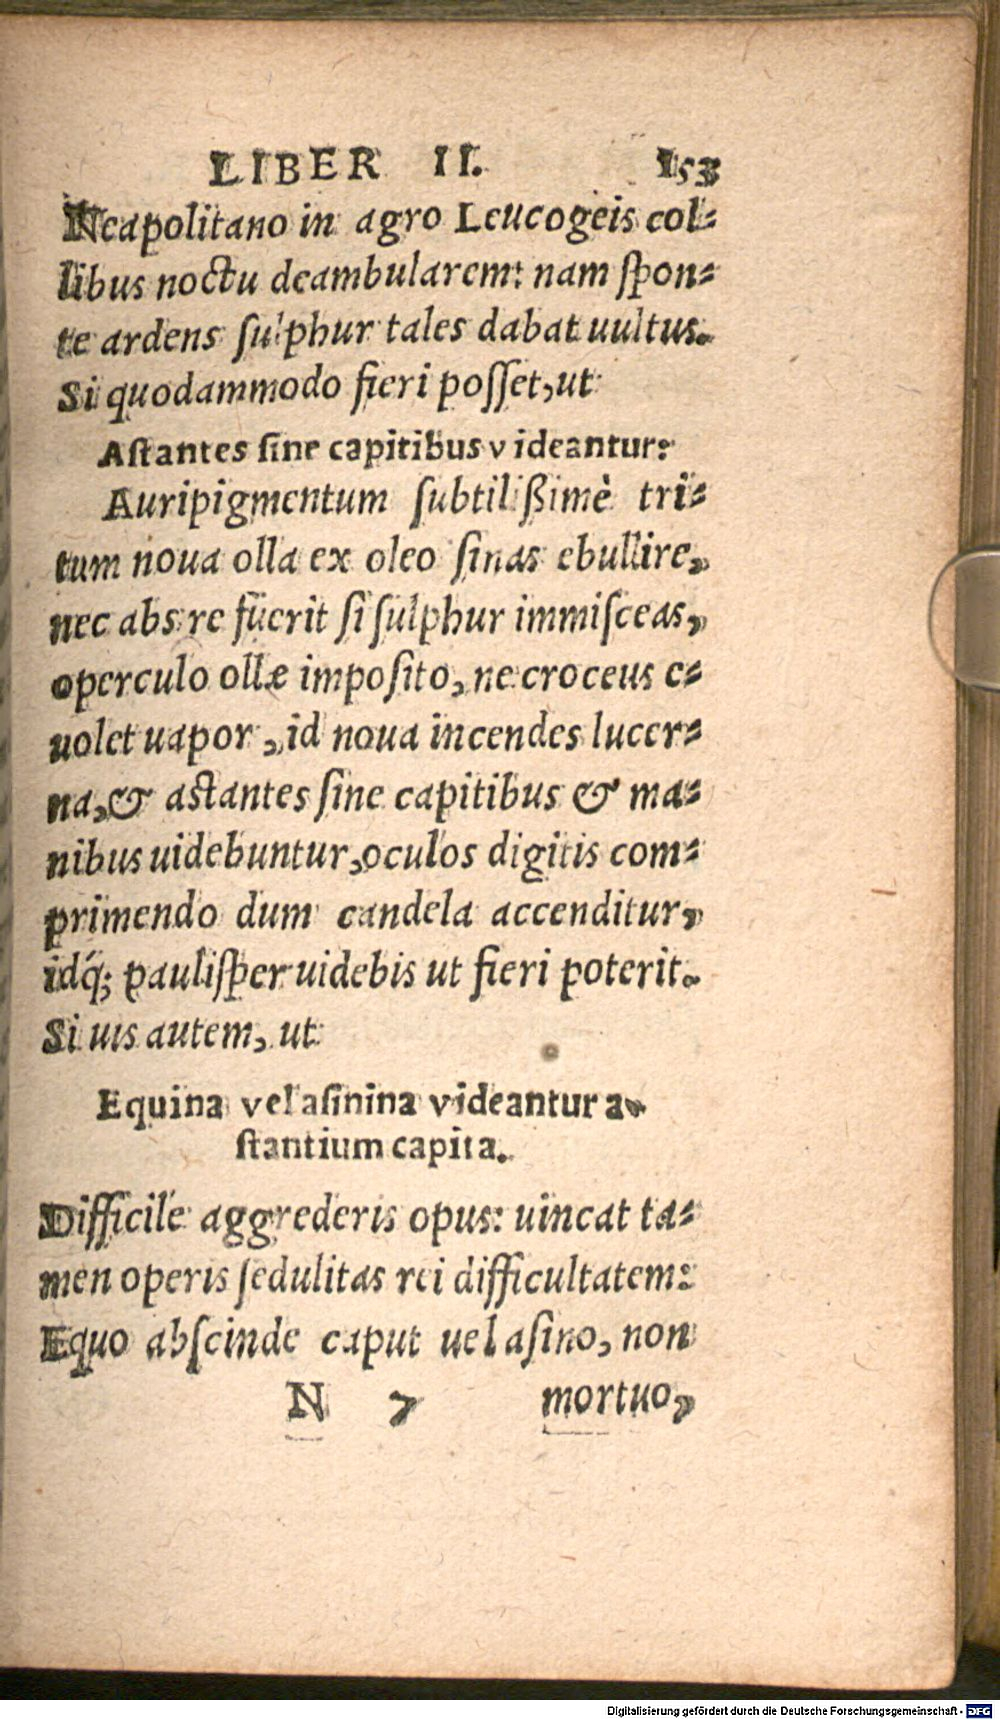 LIBER II. 153
Neapolitano in agro Leucogeis col-
libus noctu deambularem: nam spon-
te ardens sulphur tales dabat uultus.
Si quodammodo fieri posset, ut
Astantes sine capitibus videantur:
Auripigmentum subtilißimè tri-
tum noua olla ex oleo sinas ebullire,
nec abs re fuerit si sulphur immisceas,
operculo ollæ imposito, ne croceus e-
uolet uapor, id noua incendes lucer-
na, & astantes sine capitibus & ma-
nibus uidebuntur, oculos digitis com-
primendo dum candela accenditur,
idq́; paulisper uidebis ut fieri poterit.
Si uis autem, ut
Equina vel asinina videantur a-
stantium capita.
Difficile aggrederis opus: uincat ta-
men operis sedulitas rei difficultatem:
Equo abscinde caput uel asino, non
N 7 mortuo,
Digitalisierung gefördert durch die Deutsche Forschungsgemeinschaft - DFG